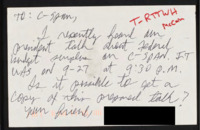 TO: C-SPAN,
I recently heard an
excellent talk about federal
budget surplus on C-SPAN. IT
WAS on 9-27 at 9:30 P.M.
Is it possible to get a
copy of this proposed talk?
Your friend,